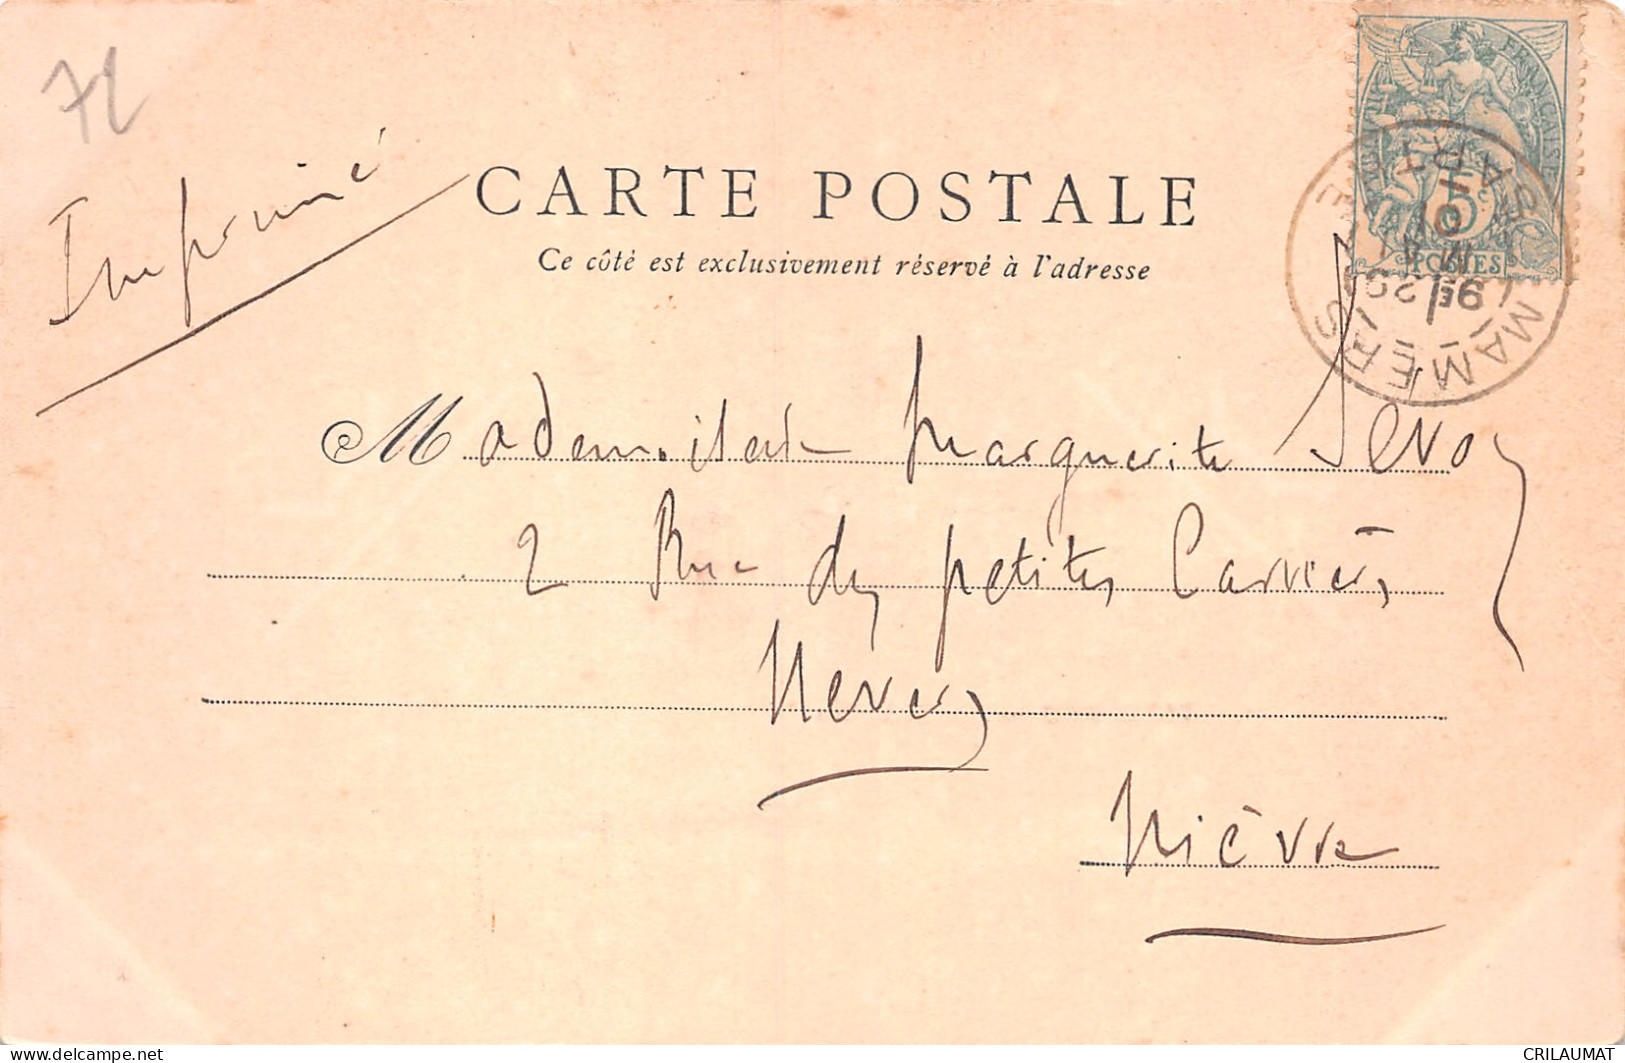 72
Imprimé
CARTE POSTALE
Ce côté est exclusivement réservé à l'adresse
RÉPUBLIQUE FRANÇAISE
5c
POSTES
MAMERS
SARTHE
Mademoiselle Marguerite Sevoy
2 Rue des petites Carrières
Nevers
Nièvre
www.delcampe.net
CRILAUMAT